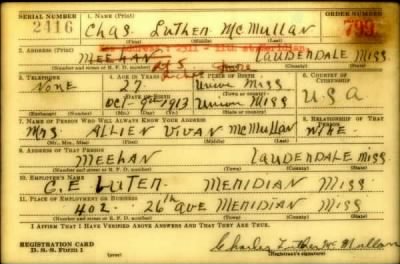 SERIAL NUMBER 1. NAME (Print) ORDER NUMBER
2416 Chas Luther McMullan 799
(First) (Middle) (Last)
2. ADDRESS (Print)
MEEHAN LAUDERDALE Miss
(Number and street or R. F. D. number) (Town) (County) (State)
3. TELEPHONE 4. AGE IN YEARS 5. PLACE OF BIRTH 6. COUNTRY OF CITIZENSHIP
NONE 27 Union Miss
DATE OF BIRTH (Town or county)
OCT-9th 1913 Union Miss U.S.A
(Mo.) (Day) (Yr.) (State or country)
7. NAME OF PERSON WHO WILL ALWAYS KNOW YOUR ADDRESS 8. RELATIONSHIP OF THAT PERSON
Mrs ALLIEN VIVAN McMULLAN WIFE
(Mr., Mrs., Miss) (First) (Middle) (Last)
9. ADDRESS OF THAT PERSON
MEEHAN LAUDERDALE Miss.
(Number and street or R. F. D. number) (Town) (County) (State)
10. EMPLOYER'S NAME
C.E LUTEN. MERIDIAN Miss.
11. PLACE OF EMPLOYMENT OR BUSINESS
402. 26th AVE MERIDIAN Miss.
(Number and street or R. F. D. number) (Town) (County) (State)
I AFFIRM THAT I HAVE VERIFIED ABOVE ANSWERS AND THAT THEY ARE TRUE.
REGISTRATION CARD
D. S. S. Form 1 Charles Luther McMullan
(Registrant's signature)